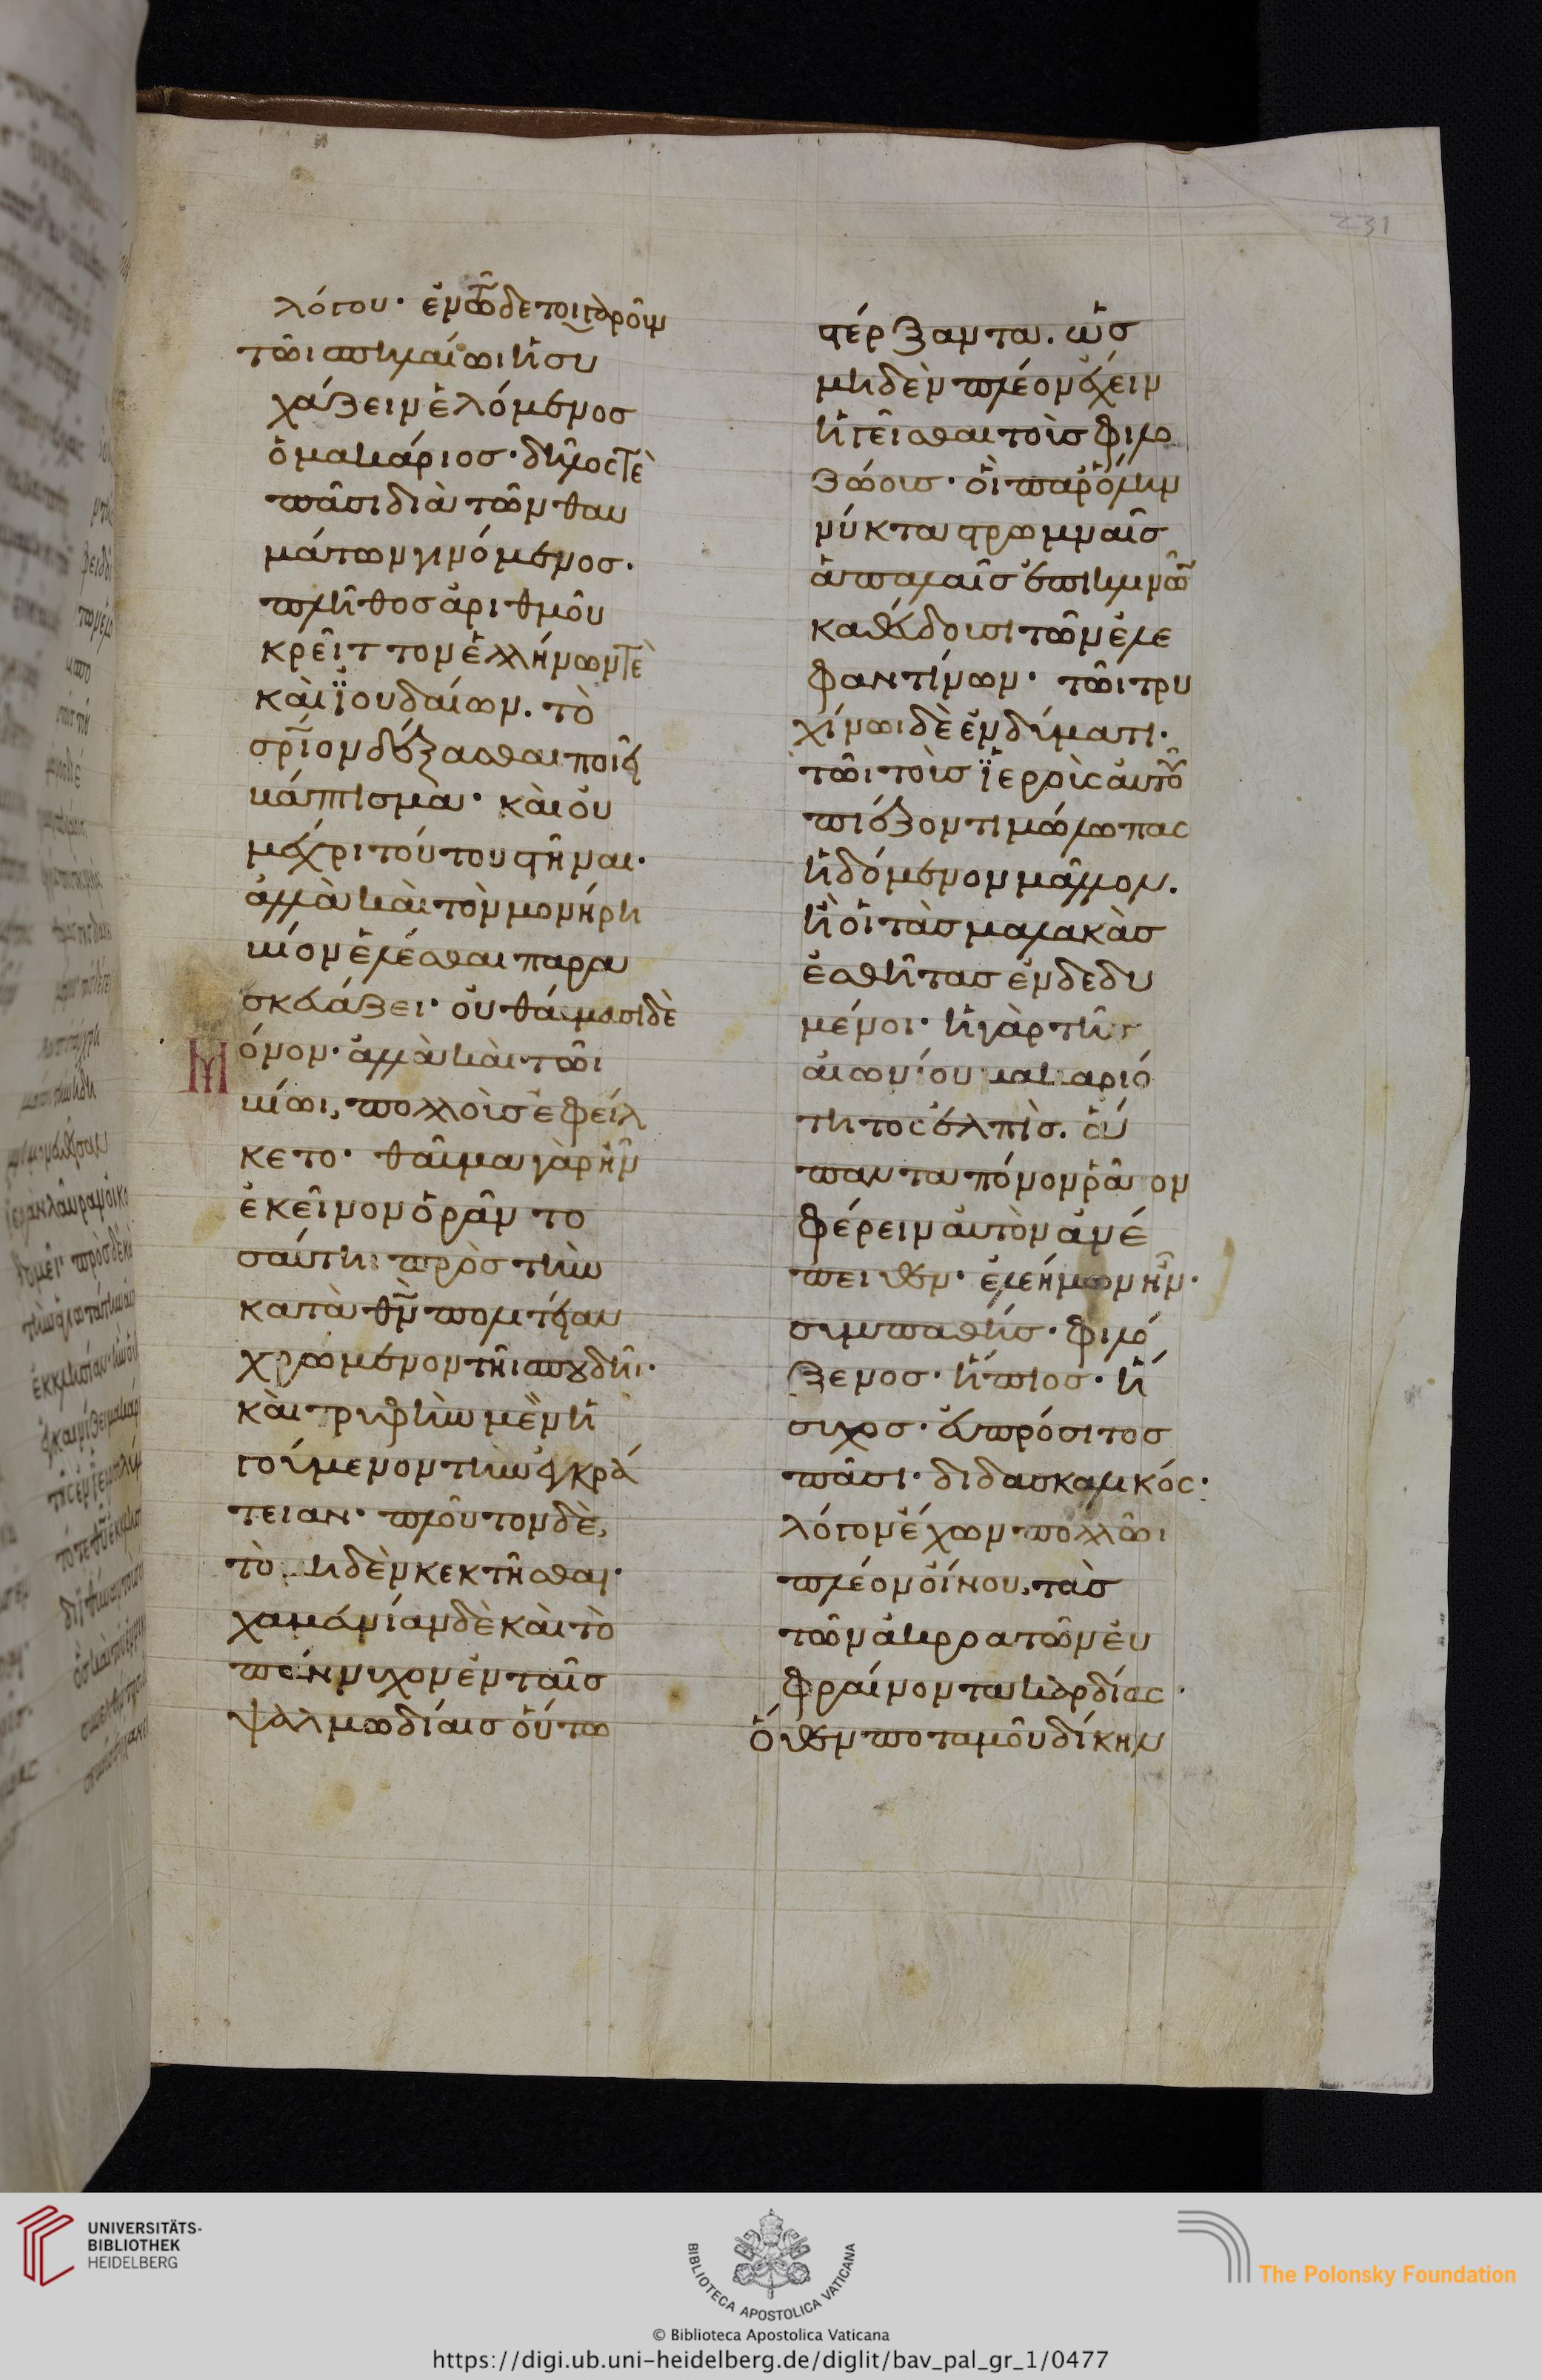 λόγου· ἐν ὧι δέ τοι τὸ ὄρειον
τῶι σπηλαίωι ἡσυ
χάζειν ἑλόμενος
ὁ μακάριος· δῆλός τε
πᾶσι διὰ τῶν θαυ
μάτων γινόμενος·
πλῆθος ἀριθμοῦ
κρεῖττον ἑλλήνων τε
καὶ ἰουδαίων· τὸ
σριον δέξασθαι ποιεῖ
βάπτισμα· καὶ οὐ
μέχρι τούτου στῆναι·
ἀλλὰ καὶ τὸν μονήρη
βίον ἑλέσθαι παρα
σκευάζει· οὐ θαύμασι δὲ
μόνον· ἀλλὰ καὶ τῶι
βίωι, πολλοὺς ἐφείλ
κετο· θαῦμα γὰρ ἦν
ἐκεῖνον ὁρᾶν το
σαύτηι πρὸς τὴν
κατὰ θν πολιτείαν
χρώμενον τῆι σπουδῆι·
καὶ τρυφὴν μὲν ἡ
γούμενον τὴν ἐγκρά
τειαν· πλοῦτον δὲ,
τὸ μηδὲν κεκτῆσθαι·
χαμευνίαν δὲ καὶ τὸ
παννυχον ἐν ταῖς
ψαλμωδίαις οὕτω
στέρξαντα· ὡς
μηδὲν πλέον ἔχειν
ἡγεῖσθαι τοὺς φιλο
ζώους· οἳ παρ' ὅλην
νύκτα στρωμναῖς
ἁπαλαῖς ἐπὶ κλινῶν
καθεύδουσι τῶν ἐλε
φαντίνων· τῶι τρυ
χίνωι δὲ ἐνδύματι·
τῶι τοὺς ἱεροὺς αὐτοῦ
πιέζοντι μώλωπας
ἡδόμενον μᾶλλον·
ἢ οἱ τὰς μαλακὰς
ἐσθῆτας ἐνδεδυ
μένοι· ἡ γὰρ τῆς
αἰωνίου μακαριό
τητος ἐλπὶς· εὖ
παντα πόνον ῥᾶιον
φέρειν αὐτὸν ἀνέ
πειθεν· ἐλεήμων ἦν·
συμπαθής· φιλό
ξενος· ἤπιος· ἥ
συχος· εὐπρόσιτος
πᾶσι· διδασκαλικός·
λόγον ἔχων πολλῶι
πλέον οἴνου, τὰς
τῶν ἀκροατῶν εὐ
φραίνοντα καρδίας·
ὅθεν ποταμοῦ δίκην
231
UNIVERSITÄTS-
BIBLIOTHEK
HEIDELBERG
BIBLIOTECA APOSTOLICA VATICANA
The Polonsky Foundation
© Biblioteca Apostolica Vaticana
https://digi.ub.uni-heidelberg.de/diglit/bav_pal_gr_1/0477